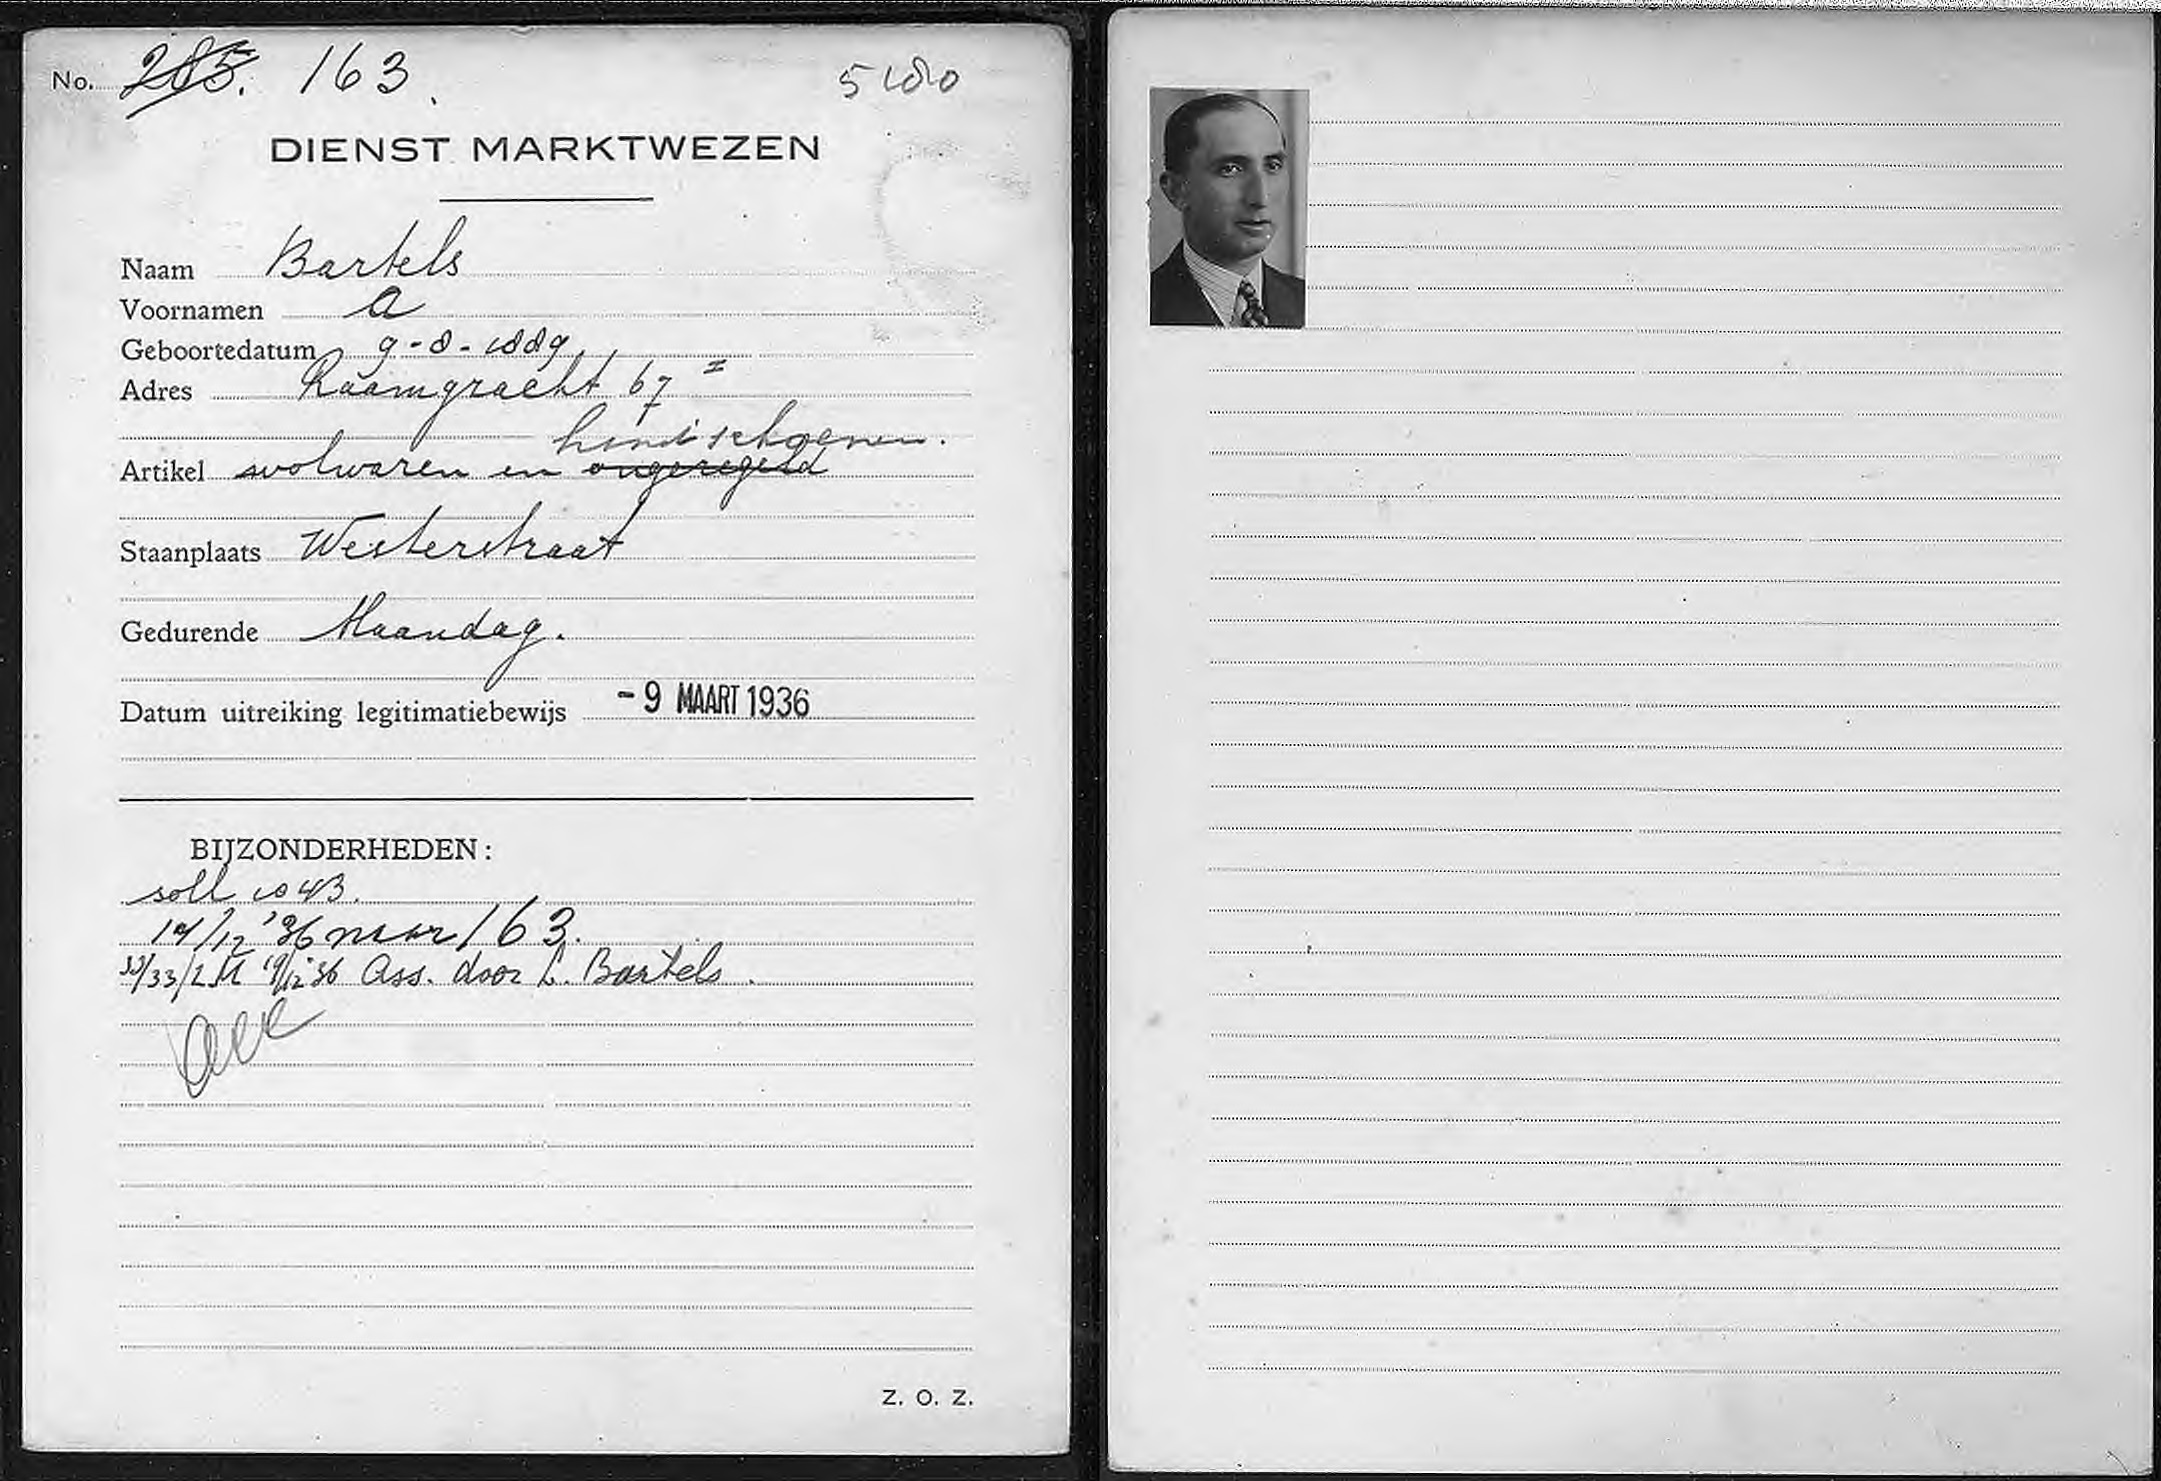 No. 285. 163.
5180
DIENST MARKTWEZEN
Naam Bartels
Voornamen A
Geboortedatum 9-8-1889.
Adres Raamgracht 67 II
handschoenen.
Artikel wolwaren en ongeregeld
Staanplaats Westerstraat
Gedurende Maandag.
Datum uitreiking legitimatiebewijs - 9 MAART 1936
BIJZONDERHEDEN:
soll 1043.
14/12 '36 naar 163.
/33/2 M 19/12 36 Ass. door L. Bartels.
Z. O. Z.